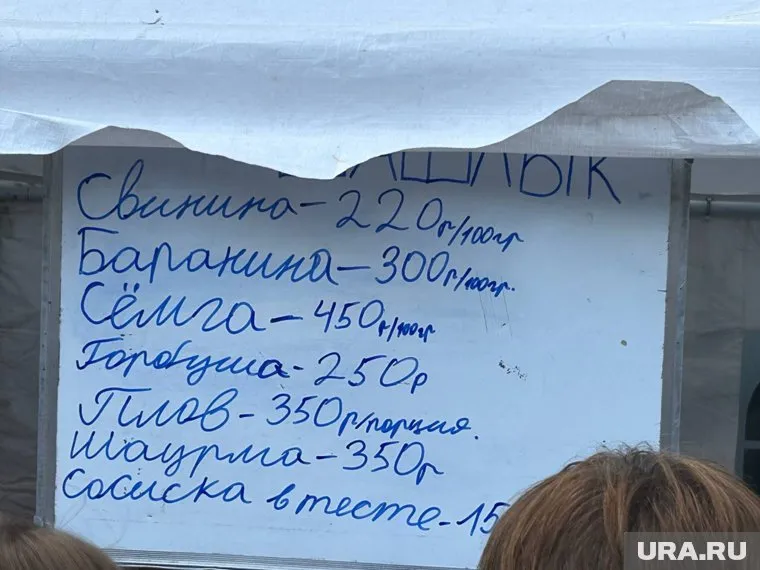 ШАШЛЫК
Свинина - 220р/100гр
Баранина - 300р/100гр.
Сёмга - 450р/100гр
Горбуша - 250р
Плов - 350р/порция.
Шаурма - 350р
Сосиска в тесте - 15
URA.RU